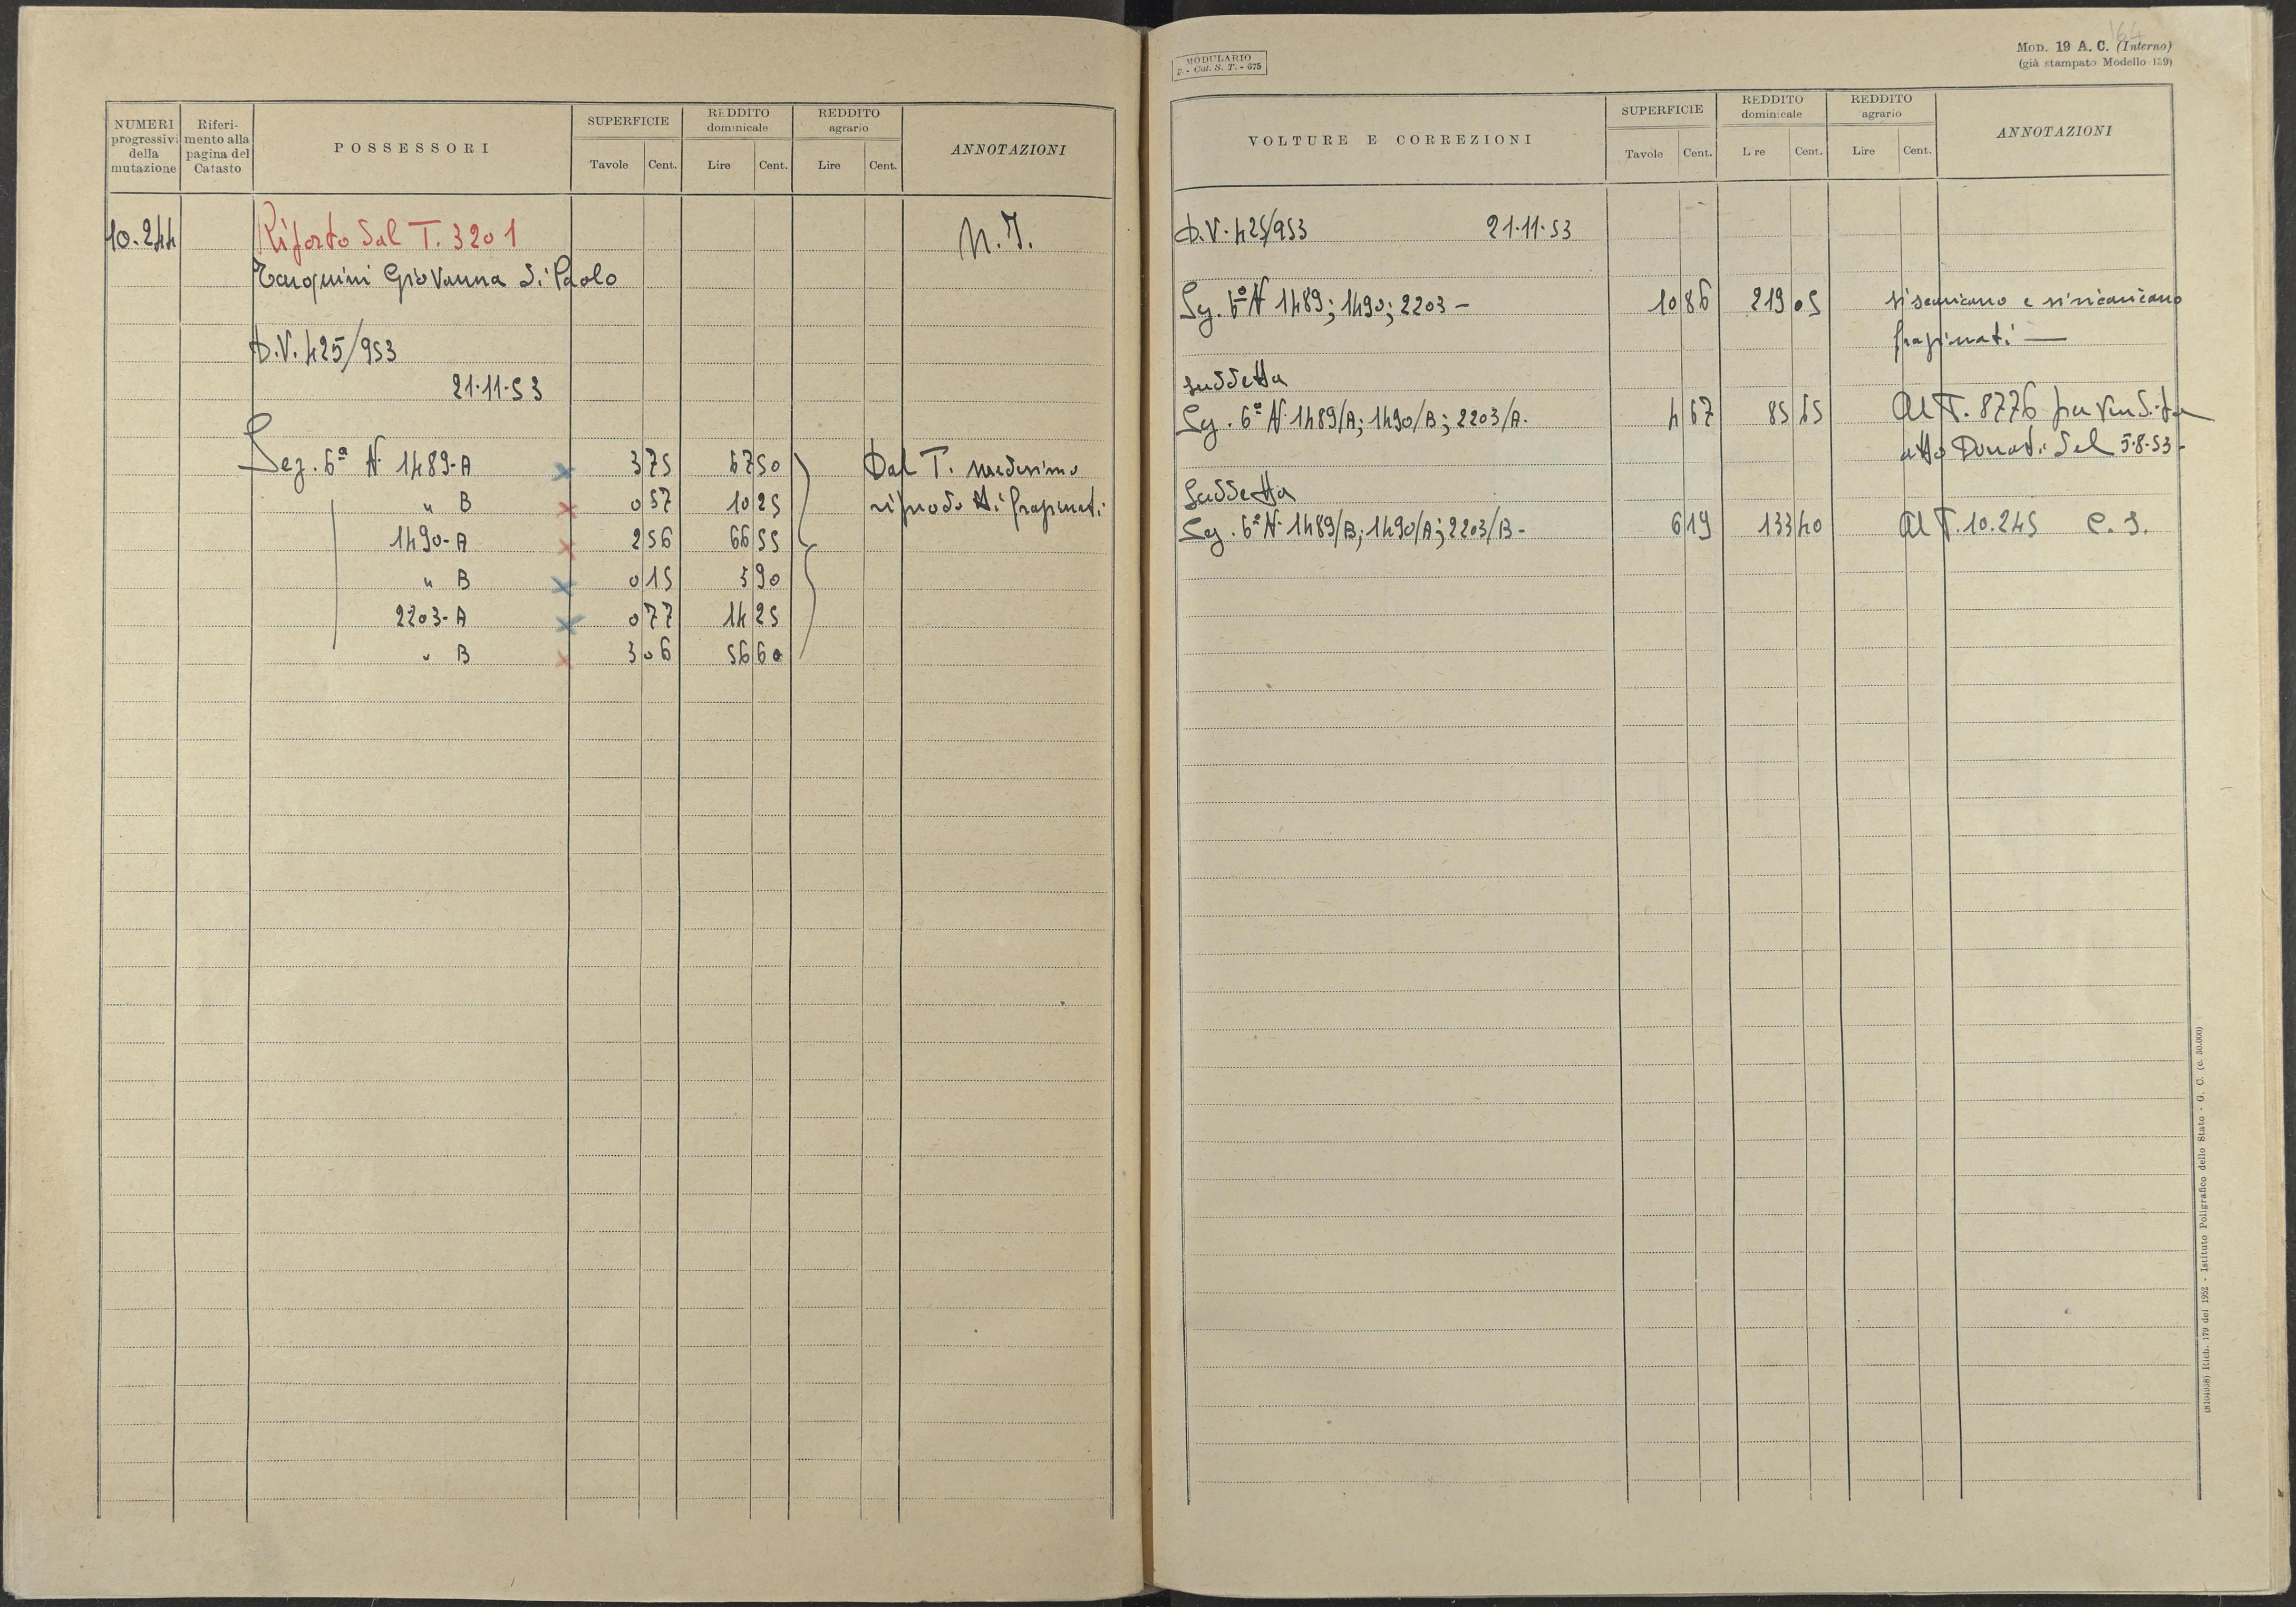 NUMERI progressivi della mutazione
Riferimento alla pagina del Catasto
POSSESSORI
SUPERFICIE
Tavole Cent.
REDDITO dominicale
Lire Cent.
REDDITO agrario
Lire Cent.
ANNOTAZIONI
10.244 Riporto dal T. 3201 N. I.
Tarquini Giovanna di Paolo
D.V. 425/953
21-11-53
Sez. 6ª N. 1489-A x 3 75 67 50 Dal T. medesimo
" B x 0 57 10 25 riprodotti frazionati
1490-A x 2 56 66 55
" B x 0 15 3 90
2203-A x 0 77 14 25
" B x 3 06 56 60
MODULARIO
F. - Cat. S. T. - 675
164
MOD. 19 A. C. (Interno)
(già stampato Modello 139)
VOLTURE E CORREZIONI
SUPERFICIE
Tavole Cent.
REDDITO dominicale
L re Cent.
REDDITO agrario
Lire Cent.
ANNOTAZIONI
D.V. 425/953 21-11-53
Sez. 6ª N 1489; 1490; 2203 - 10 86 219 05 si scaricano e si ricaricano
frazionati —
suddetta
Sez. 6ª N. 1489/A; 1490/B; 2203/A. 4 67 85 65 Al T. 8776 per vendita
atto Donati del 5-8-53-
Suddetta
Sez. 6ª N. 1489/B; 1490/A; 2203/B - 6 19 133 40 Al T. 10.245 C. S.
(8104938) Rich. 179 del 1952 - Istituto Poligrafico dello Stato - G. C. (c. 50.000)